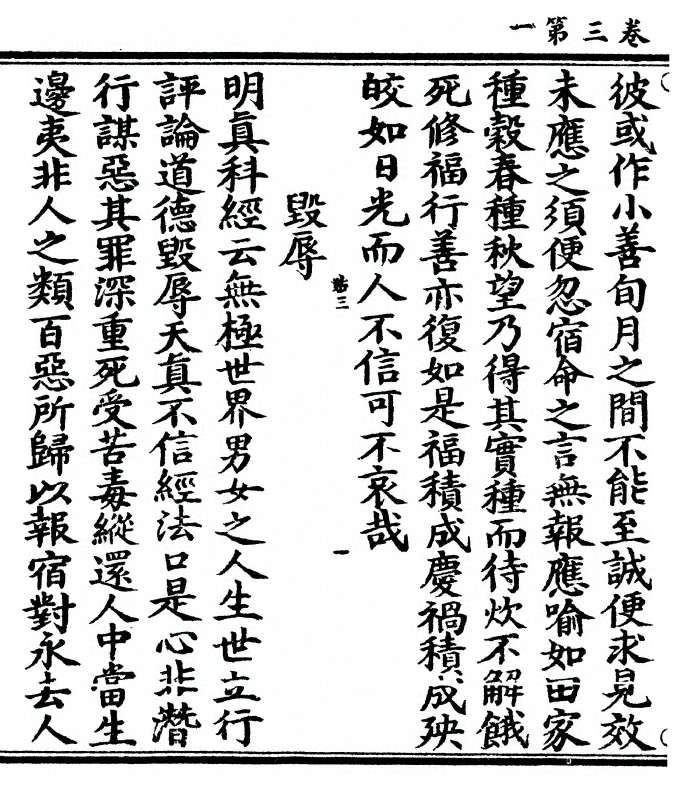 一第三卷
彼或作小善旬月之間不能至誠便求見效
未應之須便忽宿命之言無報應喻如田家
種穀春種秋望乃得其實種而待炊不解餓
死修福行善亦復如是福積成慶禍積成殃
皎如日光而人不信可不哀哉
毀辱
明真科經云無極世界男女之人生世立行
評論道德毀辱天真不信經法口是心非潛
行謀惡其罪深重死受苦毒縱還人中當生
邊夷非人之類百惡所歸以報宿對永去人